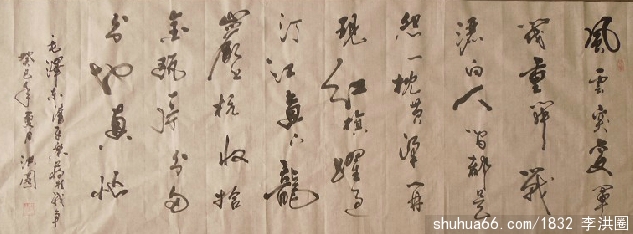 風云突变軍
阀重開战
洒向人间都是
怨一枕黄粱再
現红旗躍过
汀江直下龍
巖上杭收拾
金瓯一片分田
分地真忙
毛泽东清平乐蒋桂战争
癸巳年夏月洪圈
shuhua66.com/1832 李洪圈